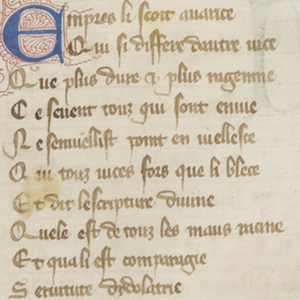 Empres li scoit auarice
Qui si differe dautre uice
Que plus dure et plus ragenne
Ce seuent touz qui sont en uie
Ne semueillist point en uiellesce
Qui touz uices fors que li blece
Et dit lescripture diuine
Quele est de touz les maus racine
Et quali est comparagie
Seruitute dydolatrie